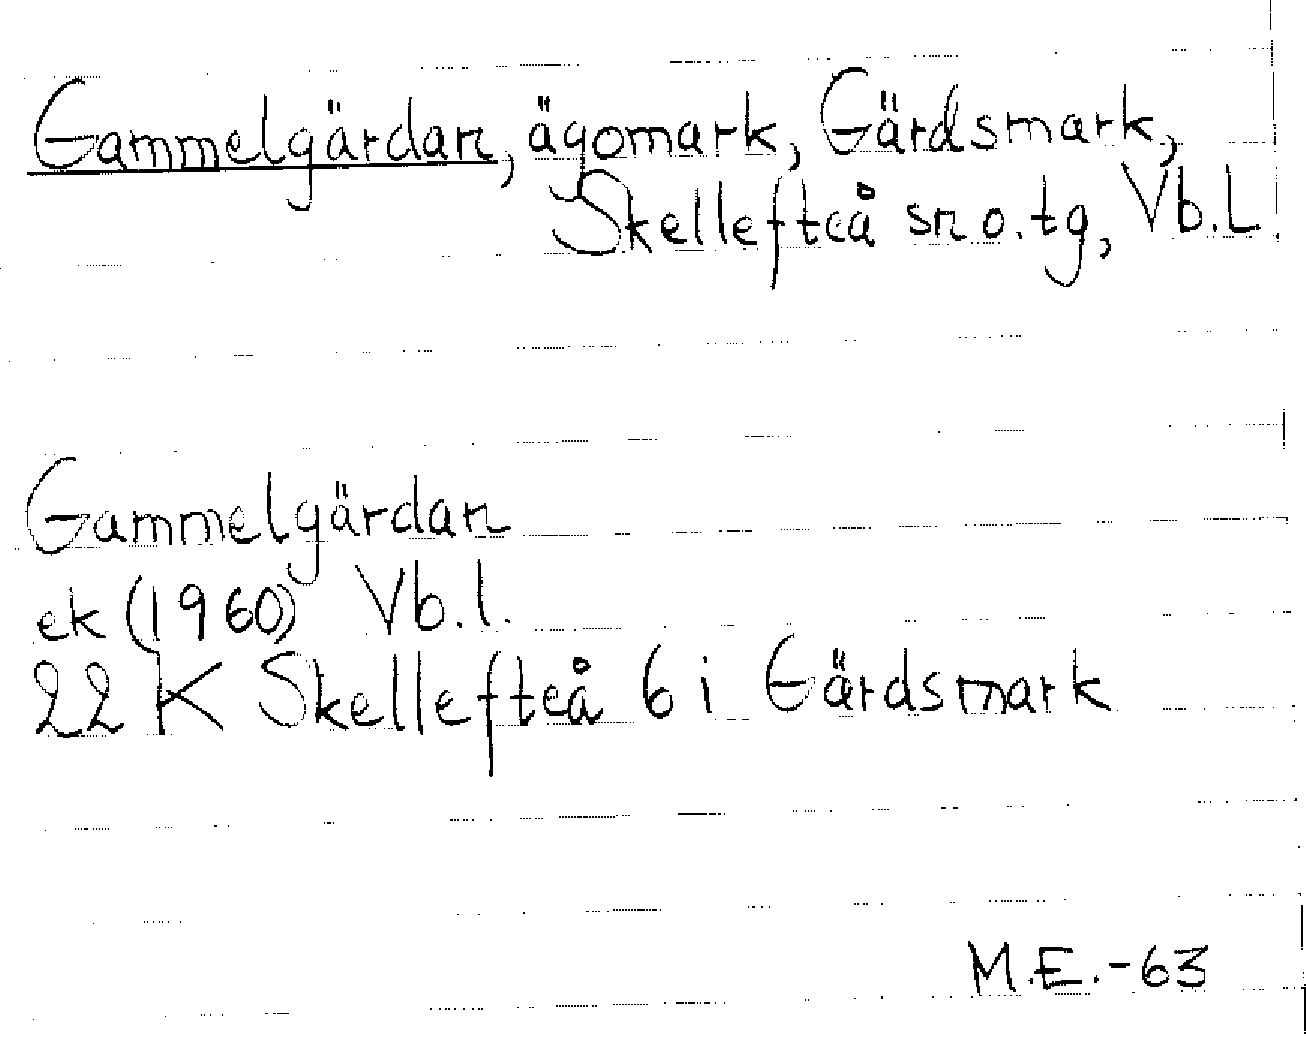 Gammelgärdan, ägomark, Gärdsmark,
Skellefteå sn o. tg, Vb.l.
Gammelgärdan
ek (1960) Vb.l.
22 K Skellefteå 6 i Gärdsmark
M.E.-63